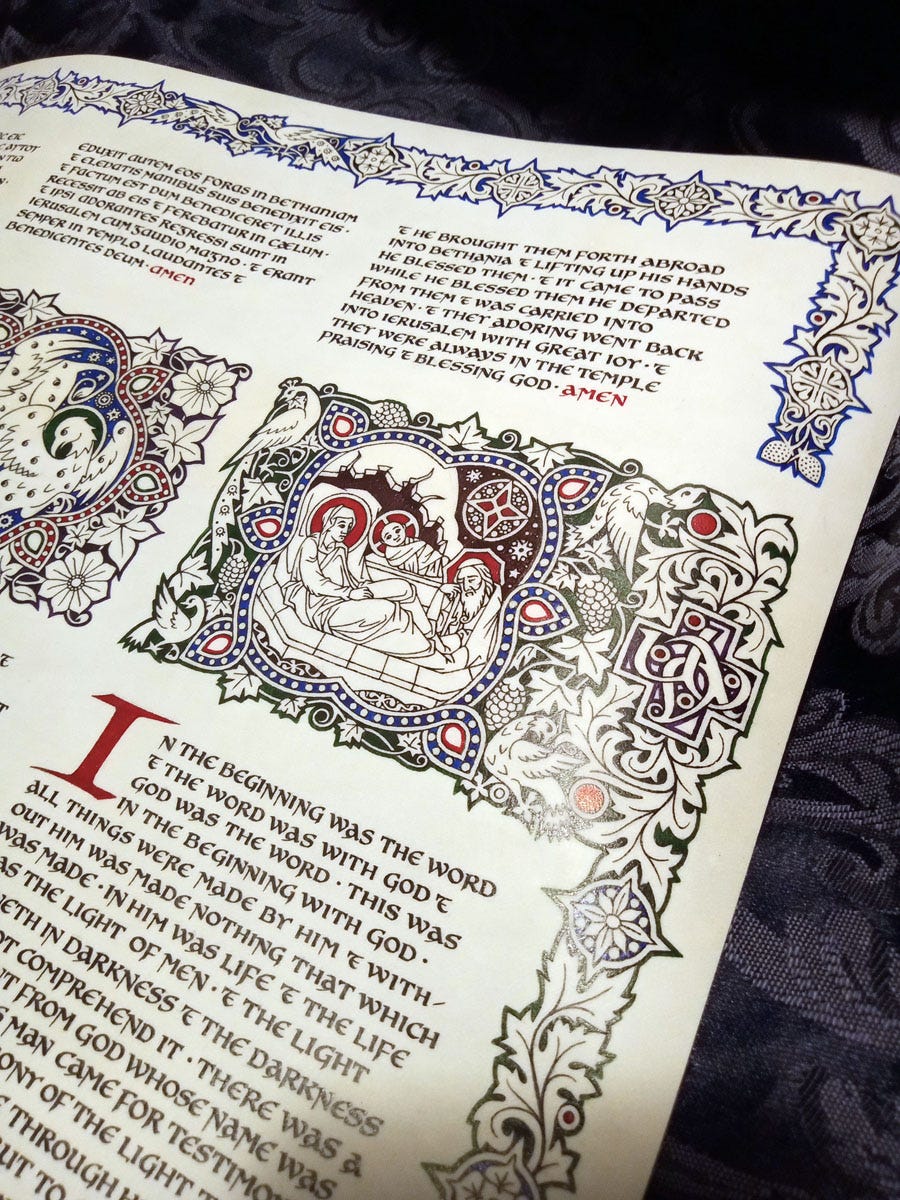 EDUXIT AUTEM EOS FORAS IN BETHANIAM
& ELEVATIS MANIBUS SUIS BENEDIXIT EIS ·
& FACTUM EST DUM BENEDICERET ILLIS
RECESSIT AB EIS & FEREBATUR IN CÆLUM ·
& IPSI ADORANTES REGRESSI SUNT IN
IERUSALEM CUM GAUDIO MAGNO · & ERANT
SEMPER IN TEMPLO LAUDANTES &
BENEDICENTES DEUM · AMEN
& HE BROUGHT THEM FORTH ABROAD
INTO BETHANIA & LIFTING UP HIS HANDS
HE BLESSED THEM · & IT CAME TO PASS
WHILE HE BLESSED THEM HE DEPARTED
FROM THEM & WAS CARRIED INTO
HEAVEN · & THEY ADORING WENT BACK
INTO IERUSALEM WITH GREAT IOY · &
THEY WERE ALWAYS IN THE TEMPLE
PRAISING & BLESSING GOD · AMEN
IN THE BEGINNING WAS THE WORD
& THE WORD WAS WITH GOD &
GOD WAS THE WORD · THIS WAS
IN THE BEGINNING WITH GOD ·
ALL THINGS WERE MADE BY HIM & WITH-
OUT HIM WAS MADE NOTHING THAT WHICH
WAS MADE · IN HIM WAS LIFE & THE LIFE
AS THE LIGHT OF MEN · & THE LIGHT
ETH IN DARKNESS & THE DARKNESS
OT COMPREHEND IT · THERE WAS A
T FROM GOD WHOSE NAME WAS
S MAN CAME FOR TESTIMO
ONY OF THE LIGHT T
THROUGH H
UT TO